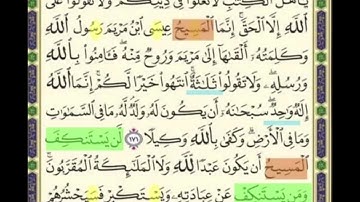 يَـٰٓأَهْلَ ٱلْكِتَـٰبِ لَا تَغْلُوا۟ فِى دِينِكُمْ وَلَا تَقُولُوا۟ عَلَى
ٱللَّهِ إِلَّا ٱلْحَقَّ ۚ إِنَّمَا ٱلْمَسِيحُ عِيسَى ٱبْنُ مَرْيَمَ رَسُولُ ٱللَّهِ
وَكَلِمَتُهُۥٓ أَلْقَىٰهَآ إِلَىٰ مَرْيَمَ وَرُوحٌ مِّنْهُ ۖ فَـَٔامِنُوا۟ بِٱللَّهِ
وَرُسُلِهِۦ ۖ وَلَا تَقُولُوا۟ ثَلَـٰثَةٌ ۚ ٱنتَهُوا۟ خَيْرًا لَّكُمْ ۚ إِنَّمَا ٱللَّهُ
إِلَـٰهٌ وَٰحِدٌ ۖ سُبْحَـٰنَهُۥٓ أَن يَكُونَ لَهُۥ وَلَدٌ ۘ لَّهُۥ مَا فِى ٱلسَّمَـٰوَٰتِ
وَمَا فِى ٱلْأَرْضِ ۗ وَكَفَىٰ بِٱللَّهِ وَكِيلًا ١٧١ لَّن يَسْتَنكِفَ
ٱلْمَسِيحُ أَن يَكُونَ عَبْدًا لِّلَّهِ وَلَا ٱلْمَلَـٰٓئِكَةُ ٱلْمُقَرَّبُونَ ۚ
وَمَن يَسْتَنكِفْ عَنْ عِبَادَتِهِۦ وَيَسْتَكْبِرْ فَسَيَحْشُرُهُمْ